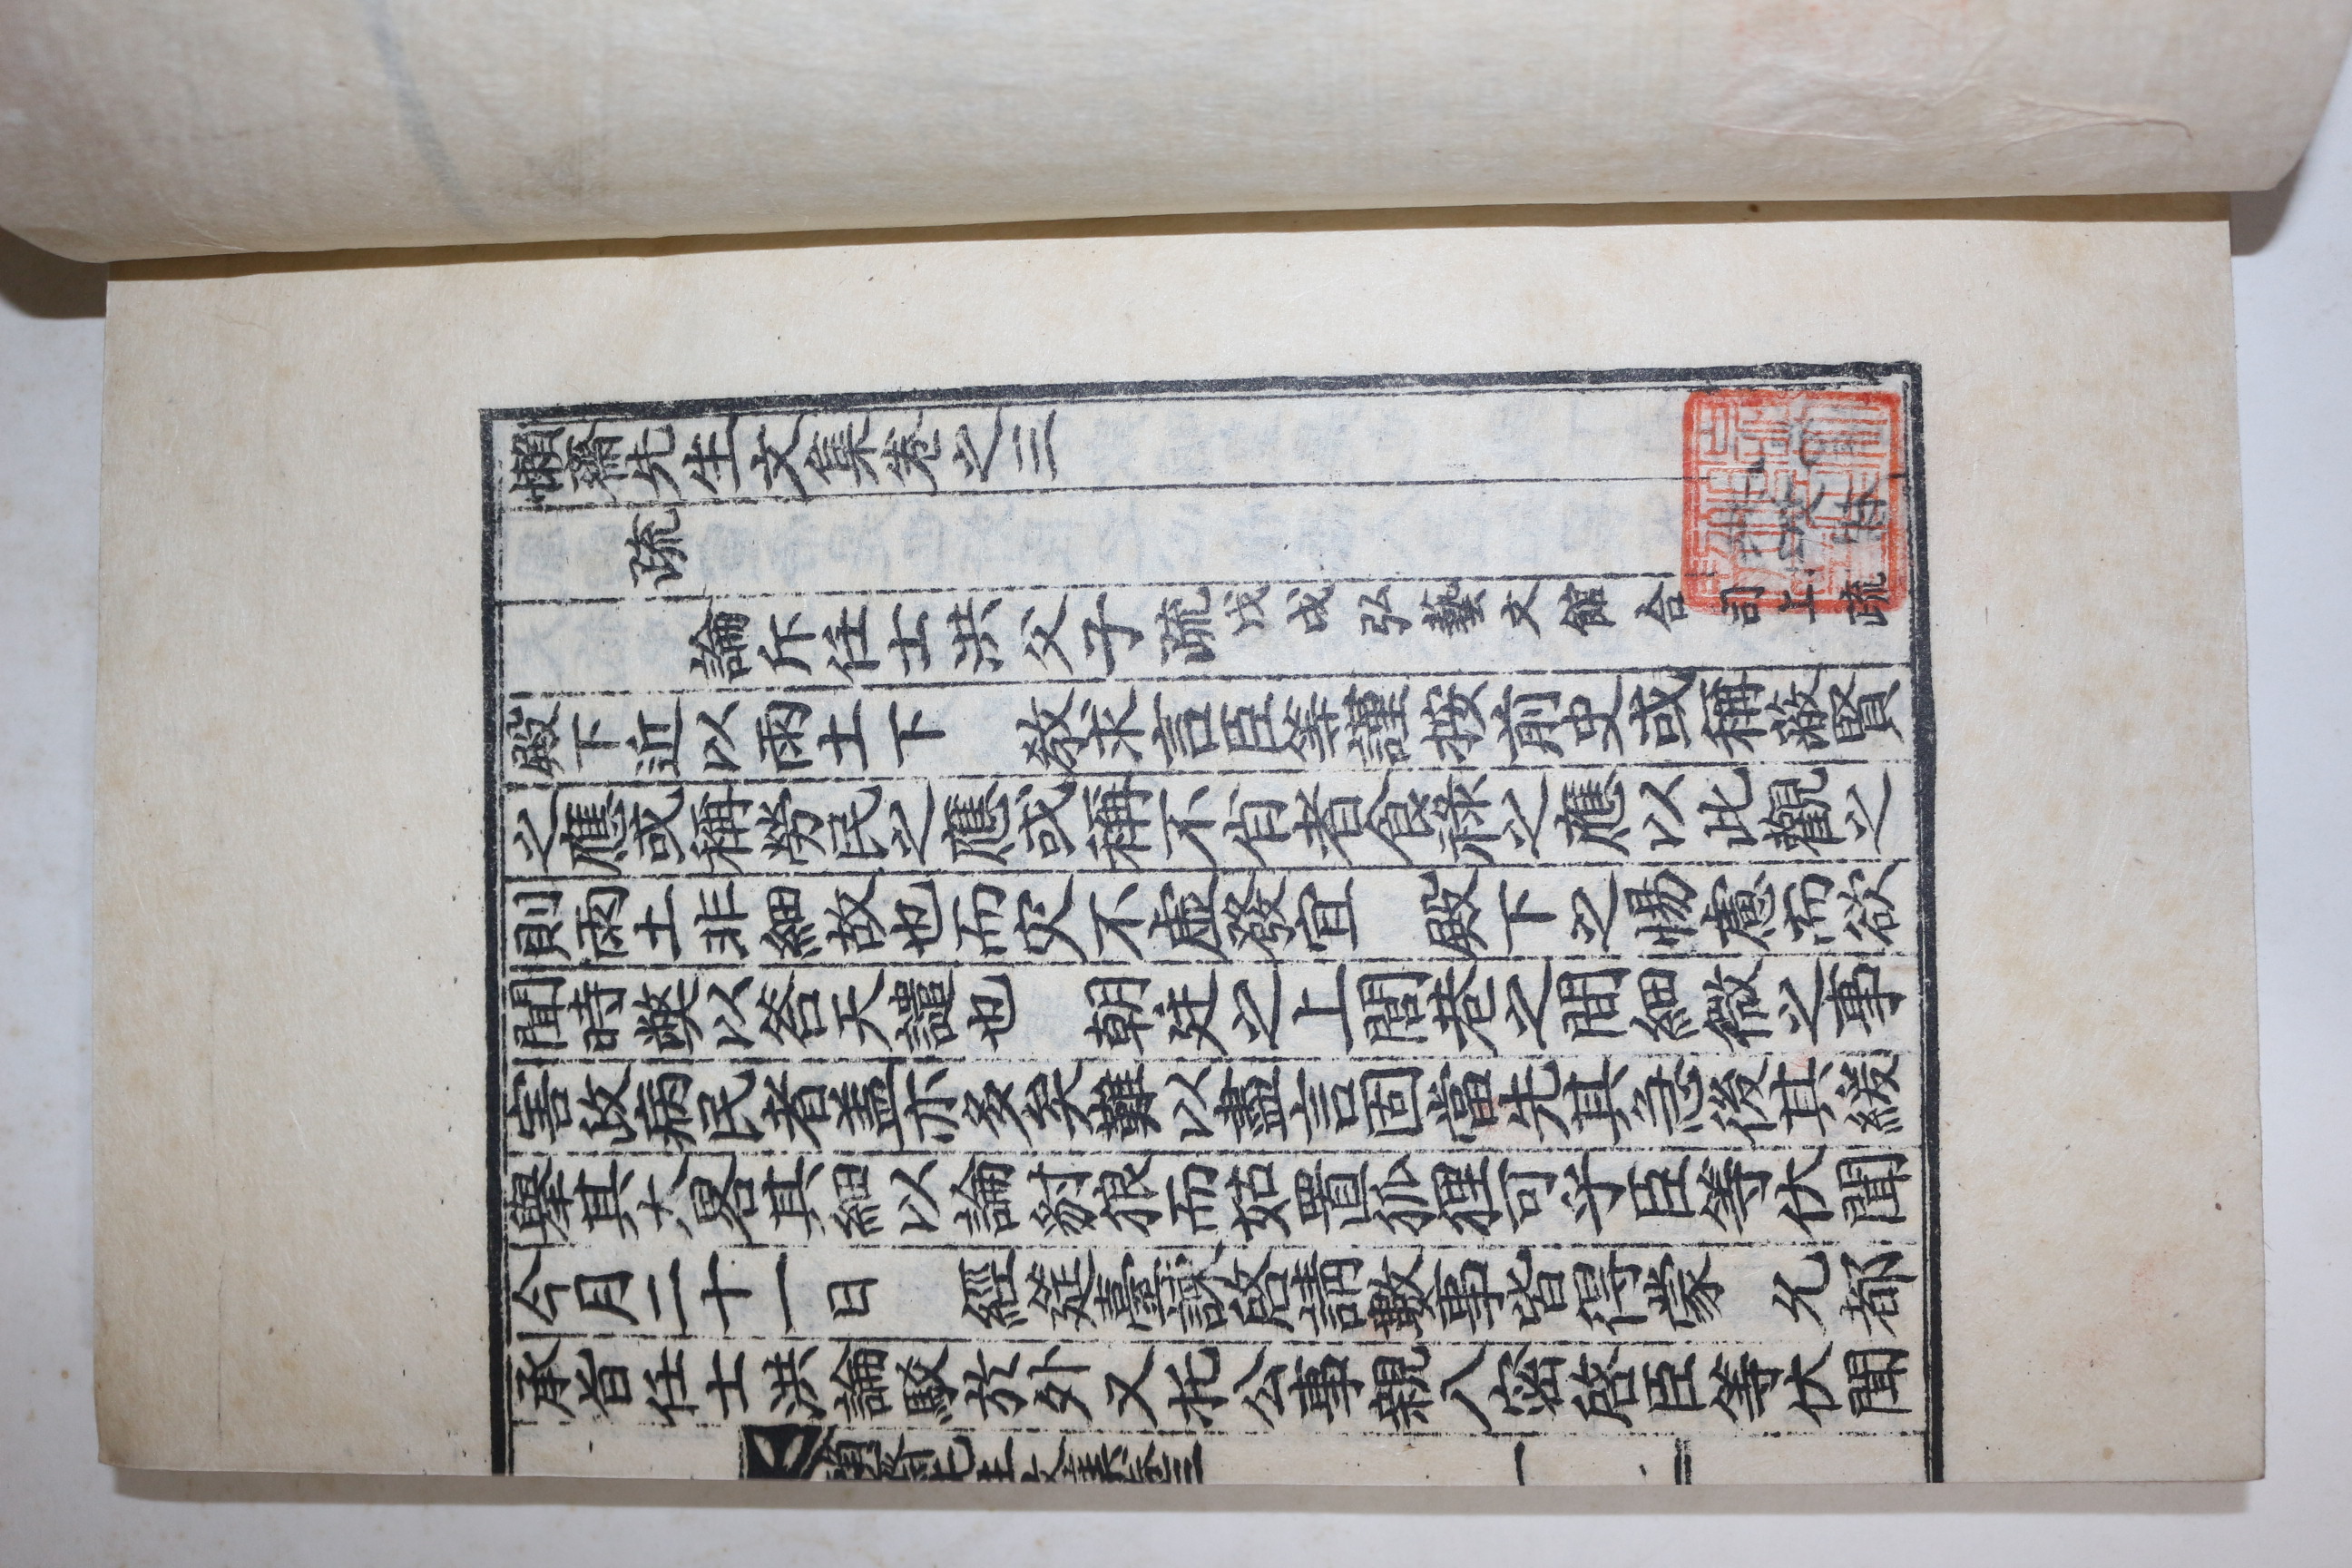 懶齋先生文集卷之三
疏
論斥任士洪父子疏戊戌弘藝文館合司上疏
殿下近以雨土下 敎求言臣等謹按前史或稱蔽賢
之應或稱勞民之應或稱不肖者食祿之應以此觀之
則雨土非細故也而灾不虛發宜 殿下之惕慮而欲
聞時弊以答天譴也 朝廷之上閭巷之間細微之事
害政病民者盖亦多矣難以盡言固當先其急後其緩
擧其大畧其細以論豺狼而姑置狐狸可乎臣等伏聞
今月二十一日 經筵臺諫啓請數事皆得蒙 允都
承旨任士洪論駁於外又托公事親入密啓臣等伏聞
懶齋先生文集卷三
一